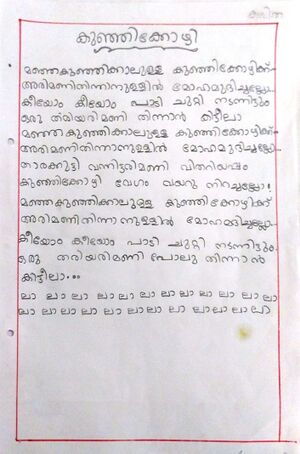 കവിത
കുഞ്ഞിക്കോഴി
മഞ്ഞകുഞ്ഞിക്കാലുള്ള കുഞ്ഞിക്കോഴിക്ക്
അരിമണിതിന്നാനുള്ളിൽ മോഹമുദിച്ചല്ലോ
കീയോം കീയോം പാടി ചുറ്റി നടന്നിട്ടും
ഒരു തരിയരിമണി തിന്നാൻ കിട്ടീലാ
മഞ്ഞകുഞ്ഞിക്കാലുള്ള കുഞ്ഞിക്കോഴിക്ക്
അരിമണിതിന്നാനുള്ളിൽ മോഹമുദിച്ചല്ലോ
താരക്കുട്ടി വന്നിട്ടരിമണി വിതറിയപ്പം
കുഞ്ഞിക്കോഴി വേഗം വയറു നിറച്ചല്ലോ!
മഞ്ഞകുഞ്ഞിക്കാലുള്ള കുഞ്ഞിക്കോഴിക്ക്
അരിമണിതിന്നാനുള്ളിൽ മോഹമുദിച്ചല്ലോ
കീയോം കീയോം പാടി ചുറ്റി നടന്നിട്ടും
ഒരു തരിയരിമണി പോലു തിന്നാൻ
കിട്ടീലാ...
ലാ ലാ ലാ ലാ ലാ ലാ ലാ ലാ ലാ ലാ ലാ ലാ
ലാ ലാ ലാ ലാ ലാ ലാ ലാ ലാ ലാ ലാ ലാ ലാ